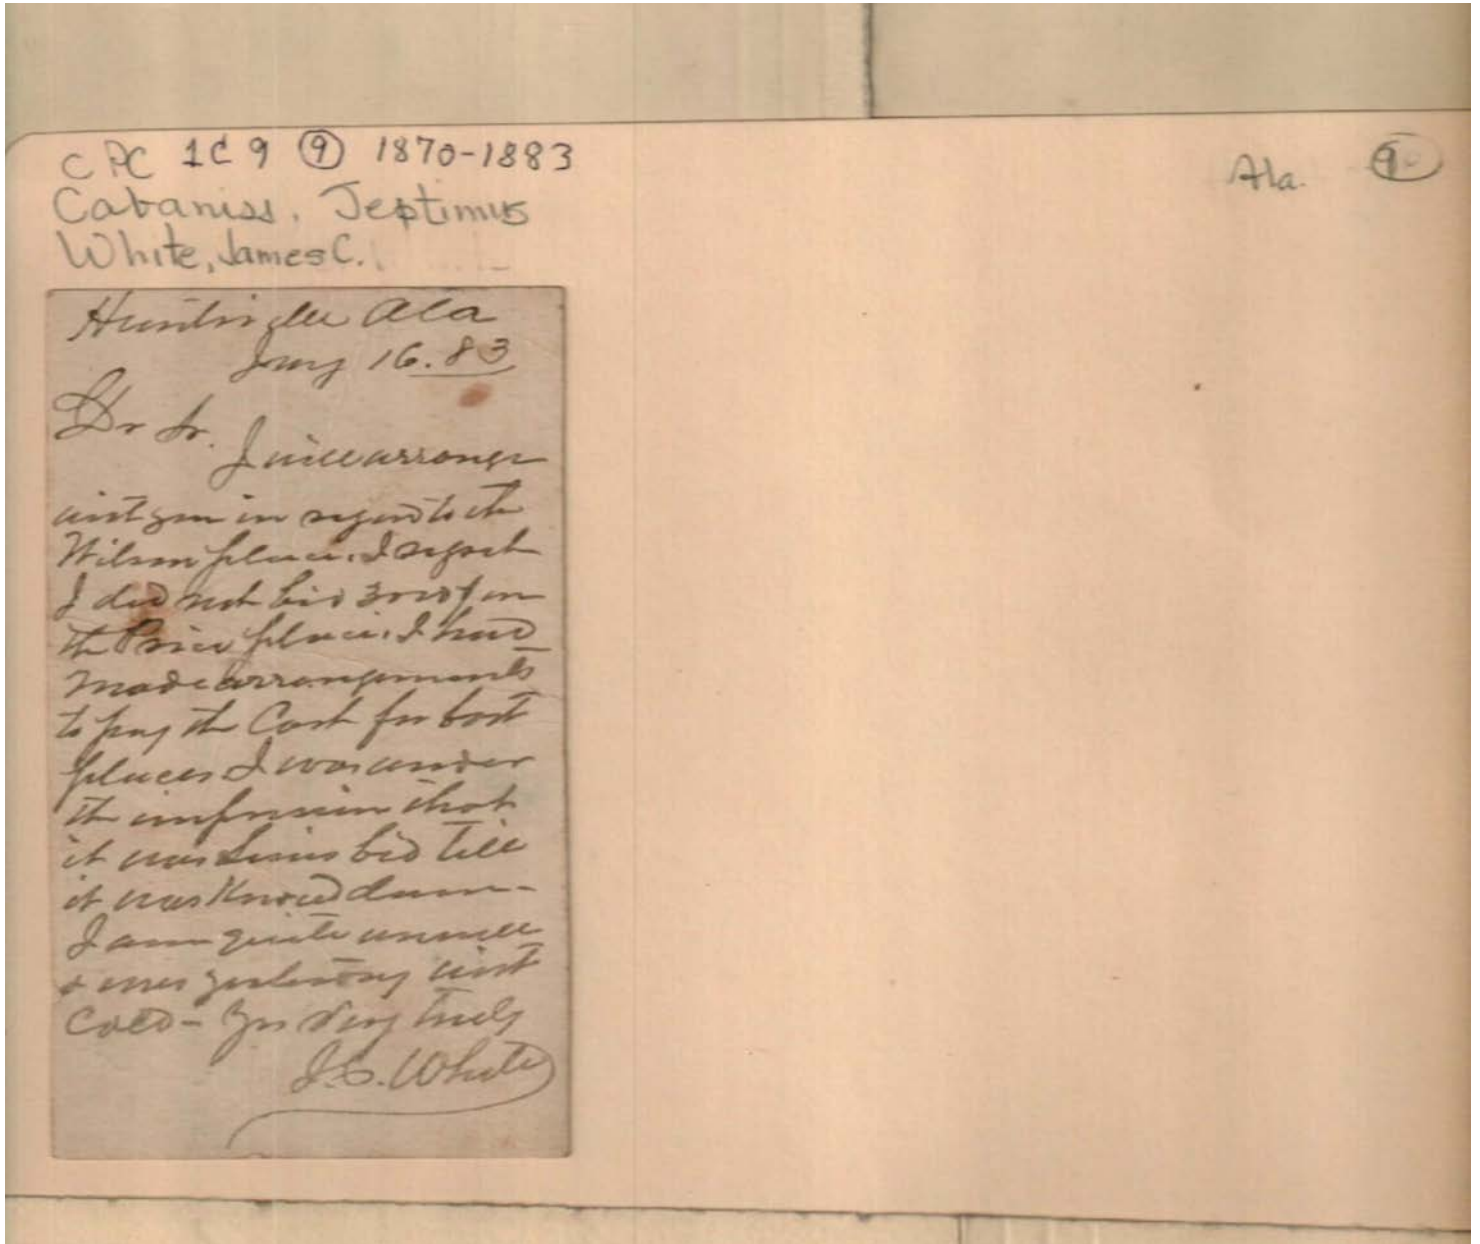 CPC 1C9 ⑨ 1870-1883
Ala. ⑨
Cabaniss, Septimus
White, James C.
Huntsville Ala
Jany 16. 83
Dr Sr.
I will arrange
with you in regard to the
Wilson place. I regret
I did not bid on
the Price place. I had
made arrangements
to pay the Cash for both
places I was under
the impression that
it was bid till
it was Knocd down-
I am quite unwell
& was yesterday with
Cold- Yrs Very truly
J.C. White